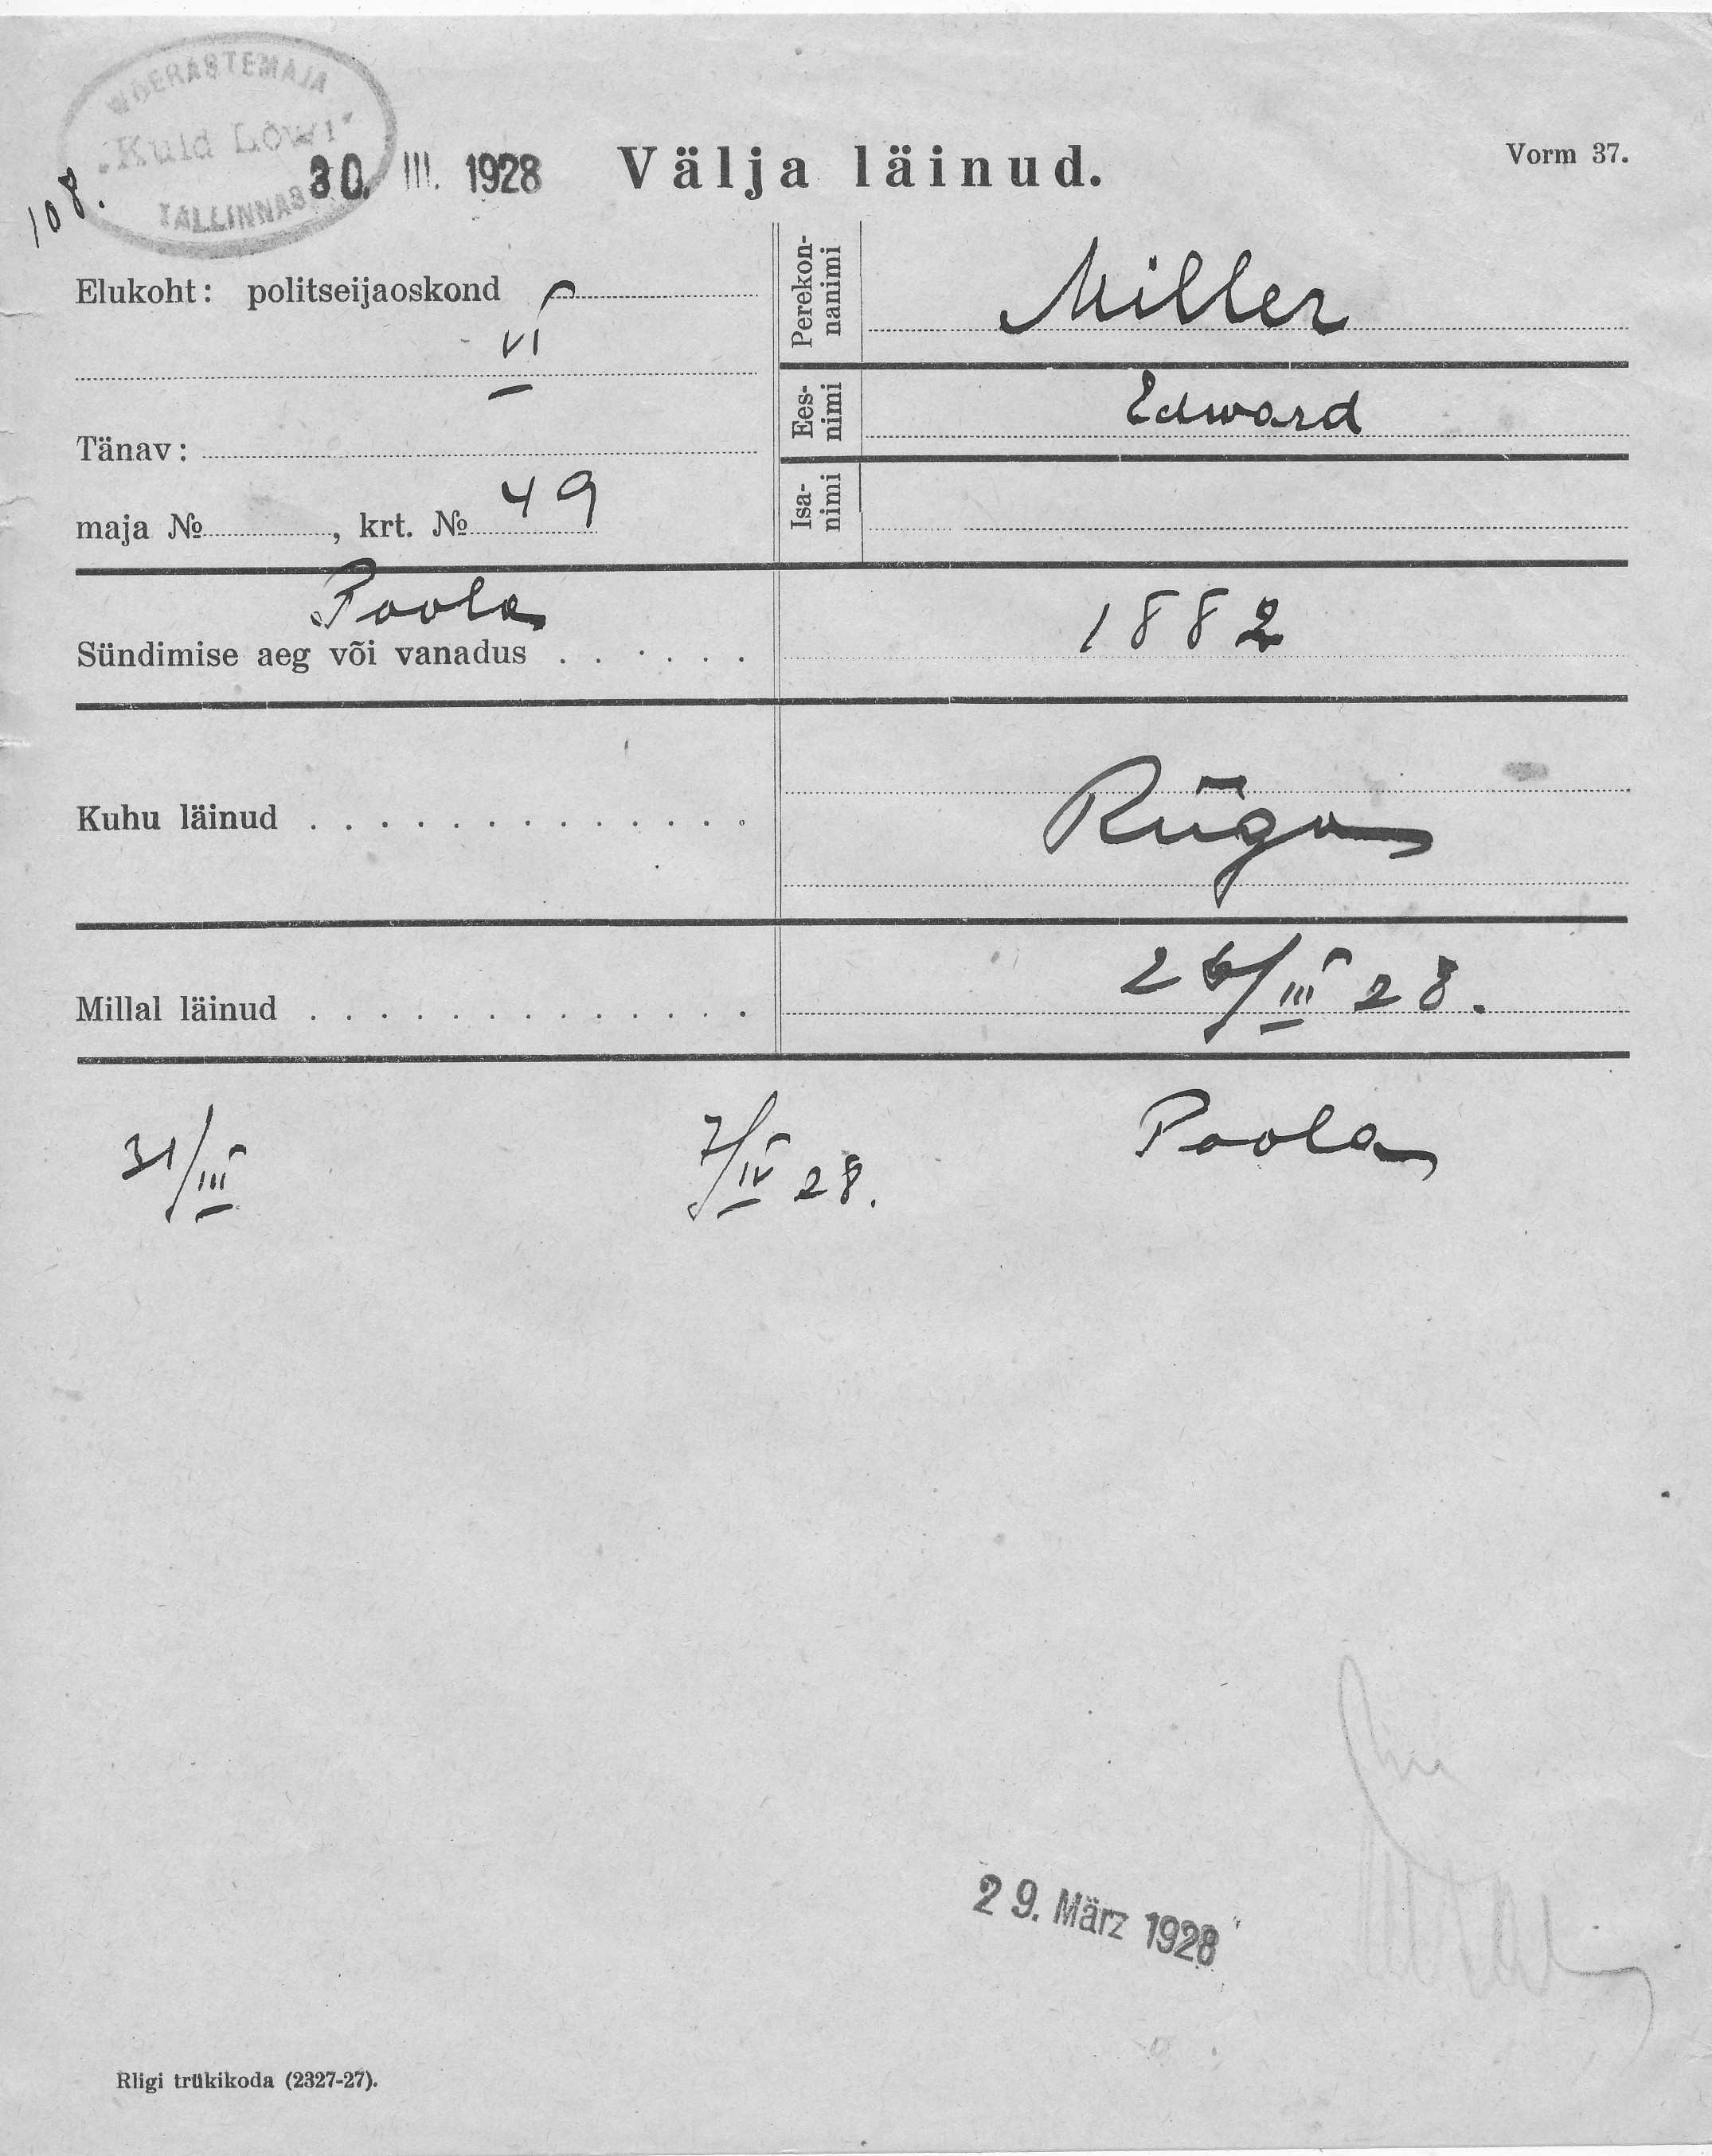 WÕERASTEMAJA
"Kuld Lõwi"
TALLINNAS
108.
30. III. 1928
Välja läinud.
Vorm 37.
Elukoht: politseijaoskond
VI
Tänav:
maja № , krt. № 49
Perekon-
nanimi
Miller
Ees-
nimi
Edward
Isa-
nimi
Poola
Sündimise aeg või vanadus . . . . . .
1882
Kuhu läinud . . . . . . . . . . . . .
Riiga
Millal läinud . . . . . . . . . . . . .
/III 28.
31/III
7/IV 28.
Poola
29. März 1928
Riigi trükikoda (2327-27).